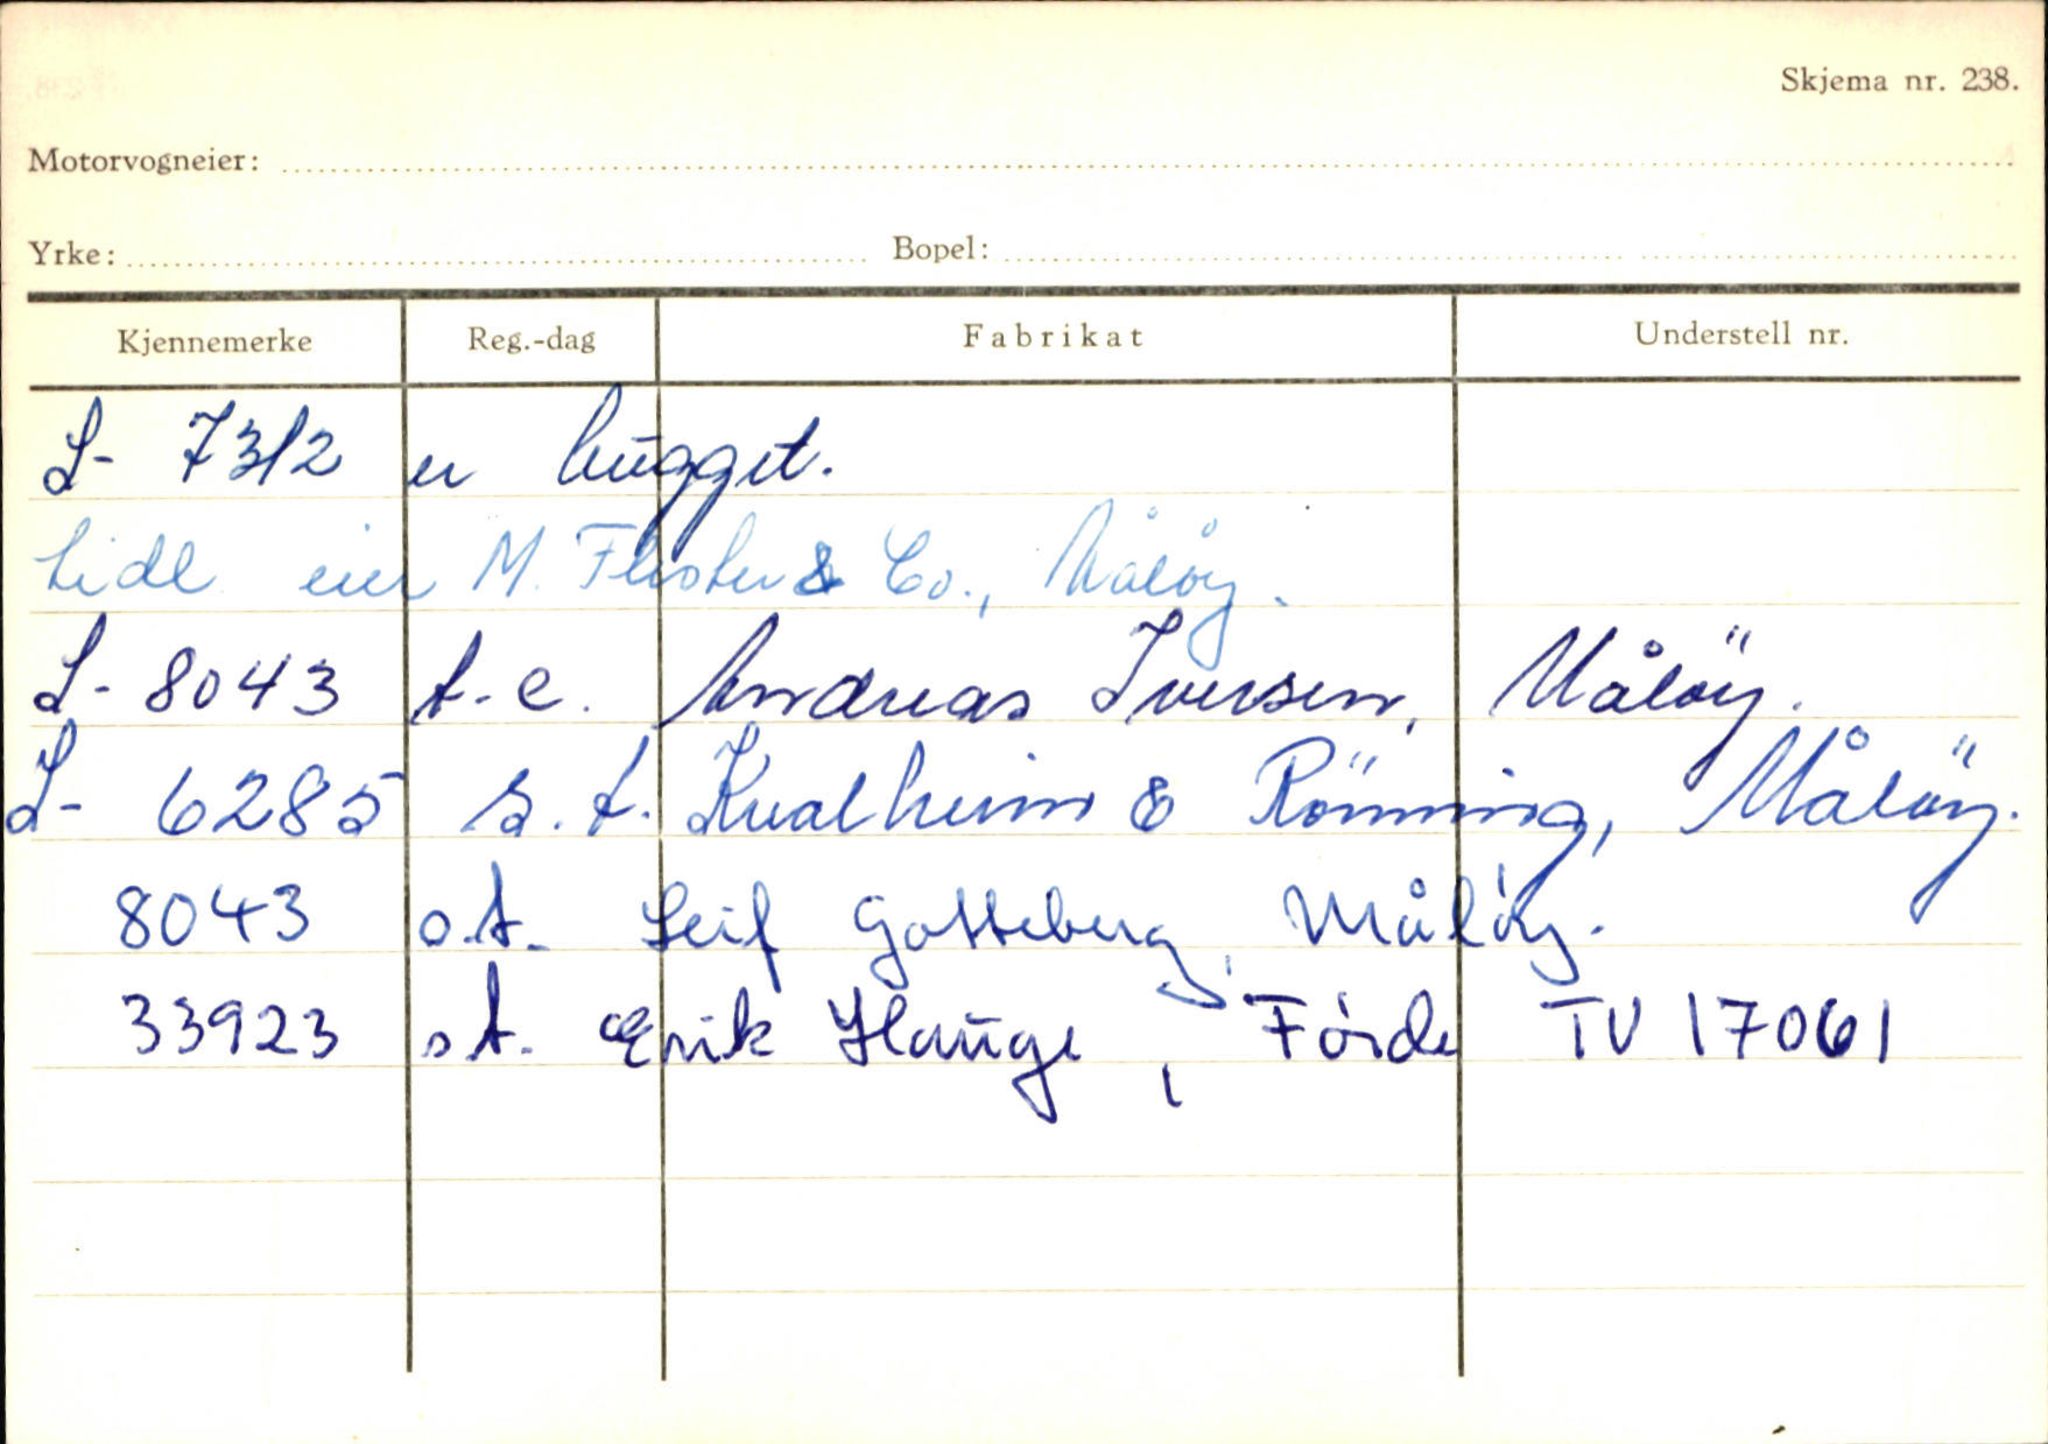 Skjema nr. 238.
Motorvogneier:
Yrke: Bopel:
Kjennemerke Reg.-dag Fabrikat Understell nr.
S- 7312 er hugget.
tidl eier M. Flister & Co., Måløy.
S- 8043 t.e. Andreas Iversen, Målöy.
S- 6285 s.t. Kvalheim & Rönning, Målöy.
8043 o.t. Leif Gotteberg, Måløy.
33923 s.t. Erik Hauge, Førde TV 17061